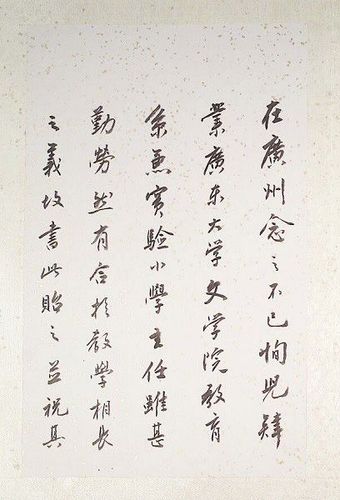 在廣州念之不已恂兒肄
業廣东大学文学院教育
系兼實驗小學主任雖甚
勤勞然有合於教學相長
之義故書此貽之並祝其